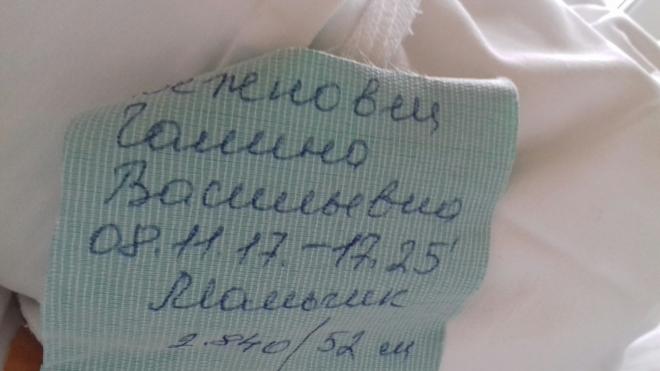 Галина
Васильевна
08.11.17.-17.25'
Мальчик
2.840/52 см